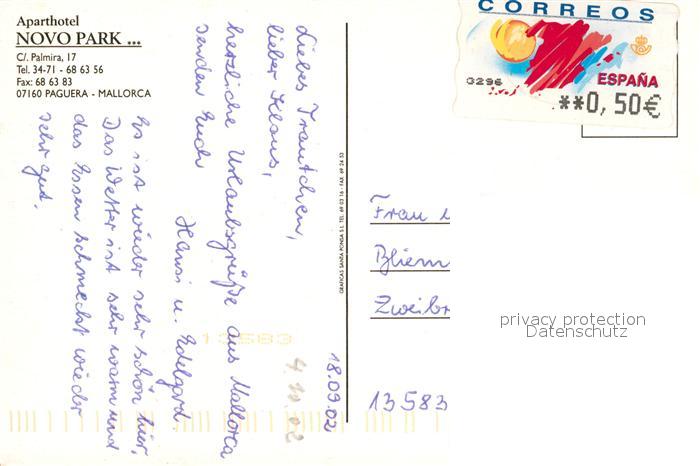 Aparthotel
NOVO PARK ...
C/. Palmira, 17
Tel. 34-71 - 68 63 56
Fax: 68 63 83
07160 PAGUERA - MALLORCA
CORREOS
0296
ESPAÑA
**0,50€
18.09.02
Liebes Trautchen,
lieber Klaus,
herzliche Urlaubsgrüße aus Mallorca
senden Euch
Hansi u. Edelgard
Es ist wieder sehr schön hier.
Das Wetter ist sehr warm und
das Essen schmeckt wieder
sehr gut.
4.10.02
13583
GRAFICAS SANTA PONSA S.L. TEL. 69 03 16 - FAX. 69 24 53
Frau
Bliem
Zweibr
13583
privacy protection
Datenschutz